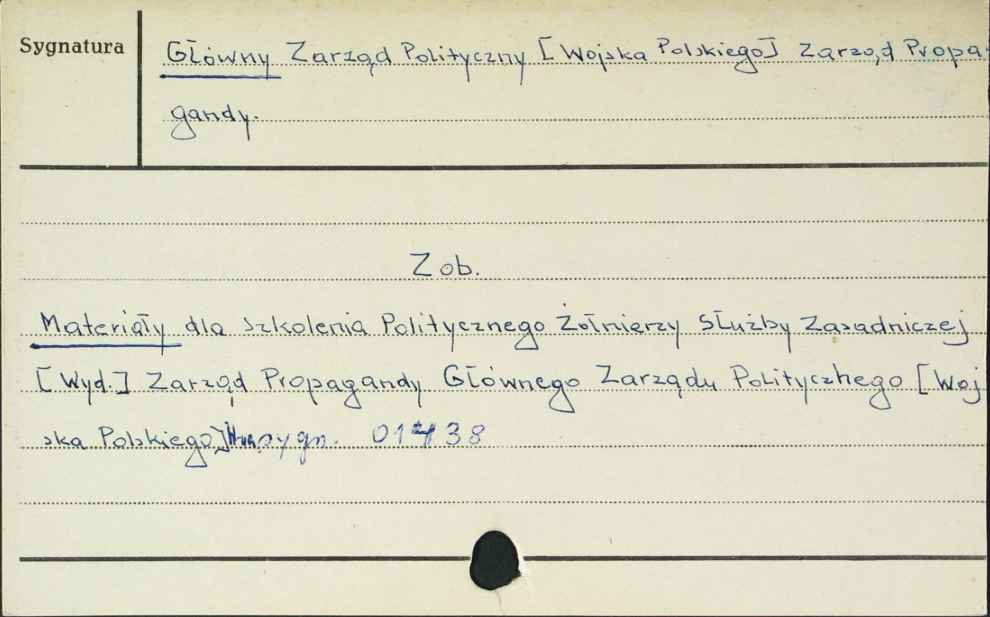 Sygnatura
Główny Zarząd Polityczny [Wojska Polskiego] Zarząd Propa-
gandy.
Zob.
Materiały dla szkolenia Politycznego Żołnierzy Służby Zasadniczej
[Wyd.] Zarząd Propagandy Głównego Zarządu Politycznego [Woj
ska Polskiego] sygn.